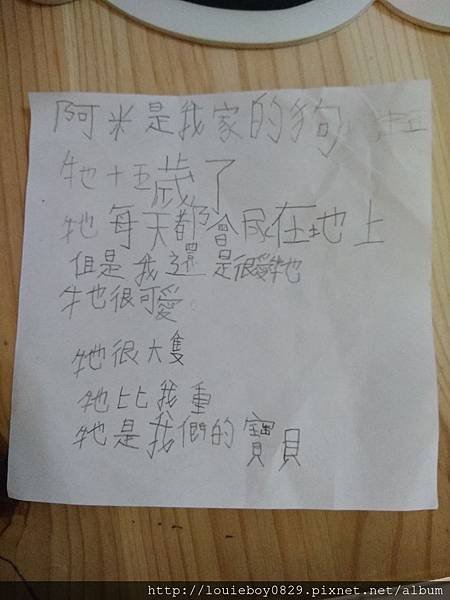 阿米是我家的狗
牠十五歲了
牠每天都會尿在地上
但是我還是很愛牠
牠很可愛
牠很大隻
牠比我重
牠是我們的寶貝
http://louieboy0829.pixnet.net/album